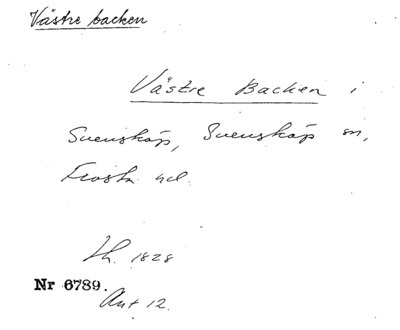 Västre backen
Västre Backen i
Svensköp, Svensköp sn,
Frosta hd.
Lh. 1828
Nr 6789.
Akt 12.